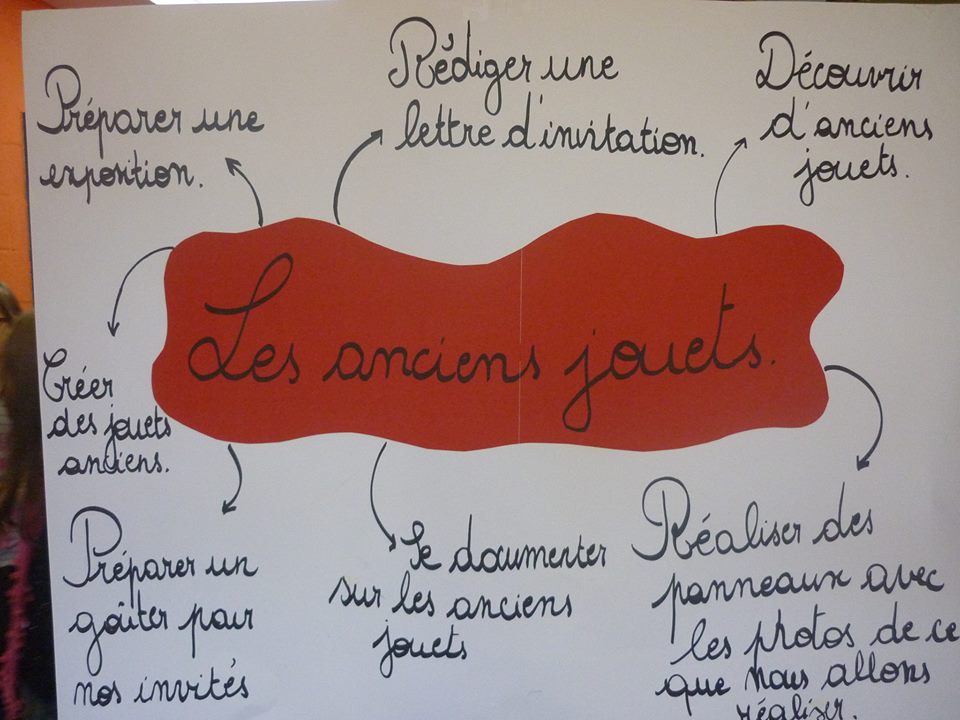 Préparer une
exposition.
Rédiger une
lettre d'invitation.
Découvrir
d'anciens
jouets.
Les anciens jouets.
Créer
des jouets
anciens.
Préparer un
goûter pour
nos invités
Se documenter
sur les anciens
jouets
Réaliser des
panneaux avec
les photos de ce
que nous allons
réaliser.